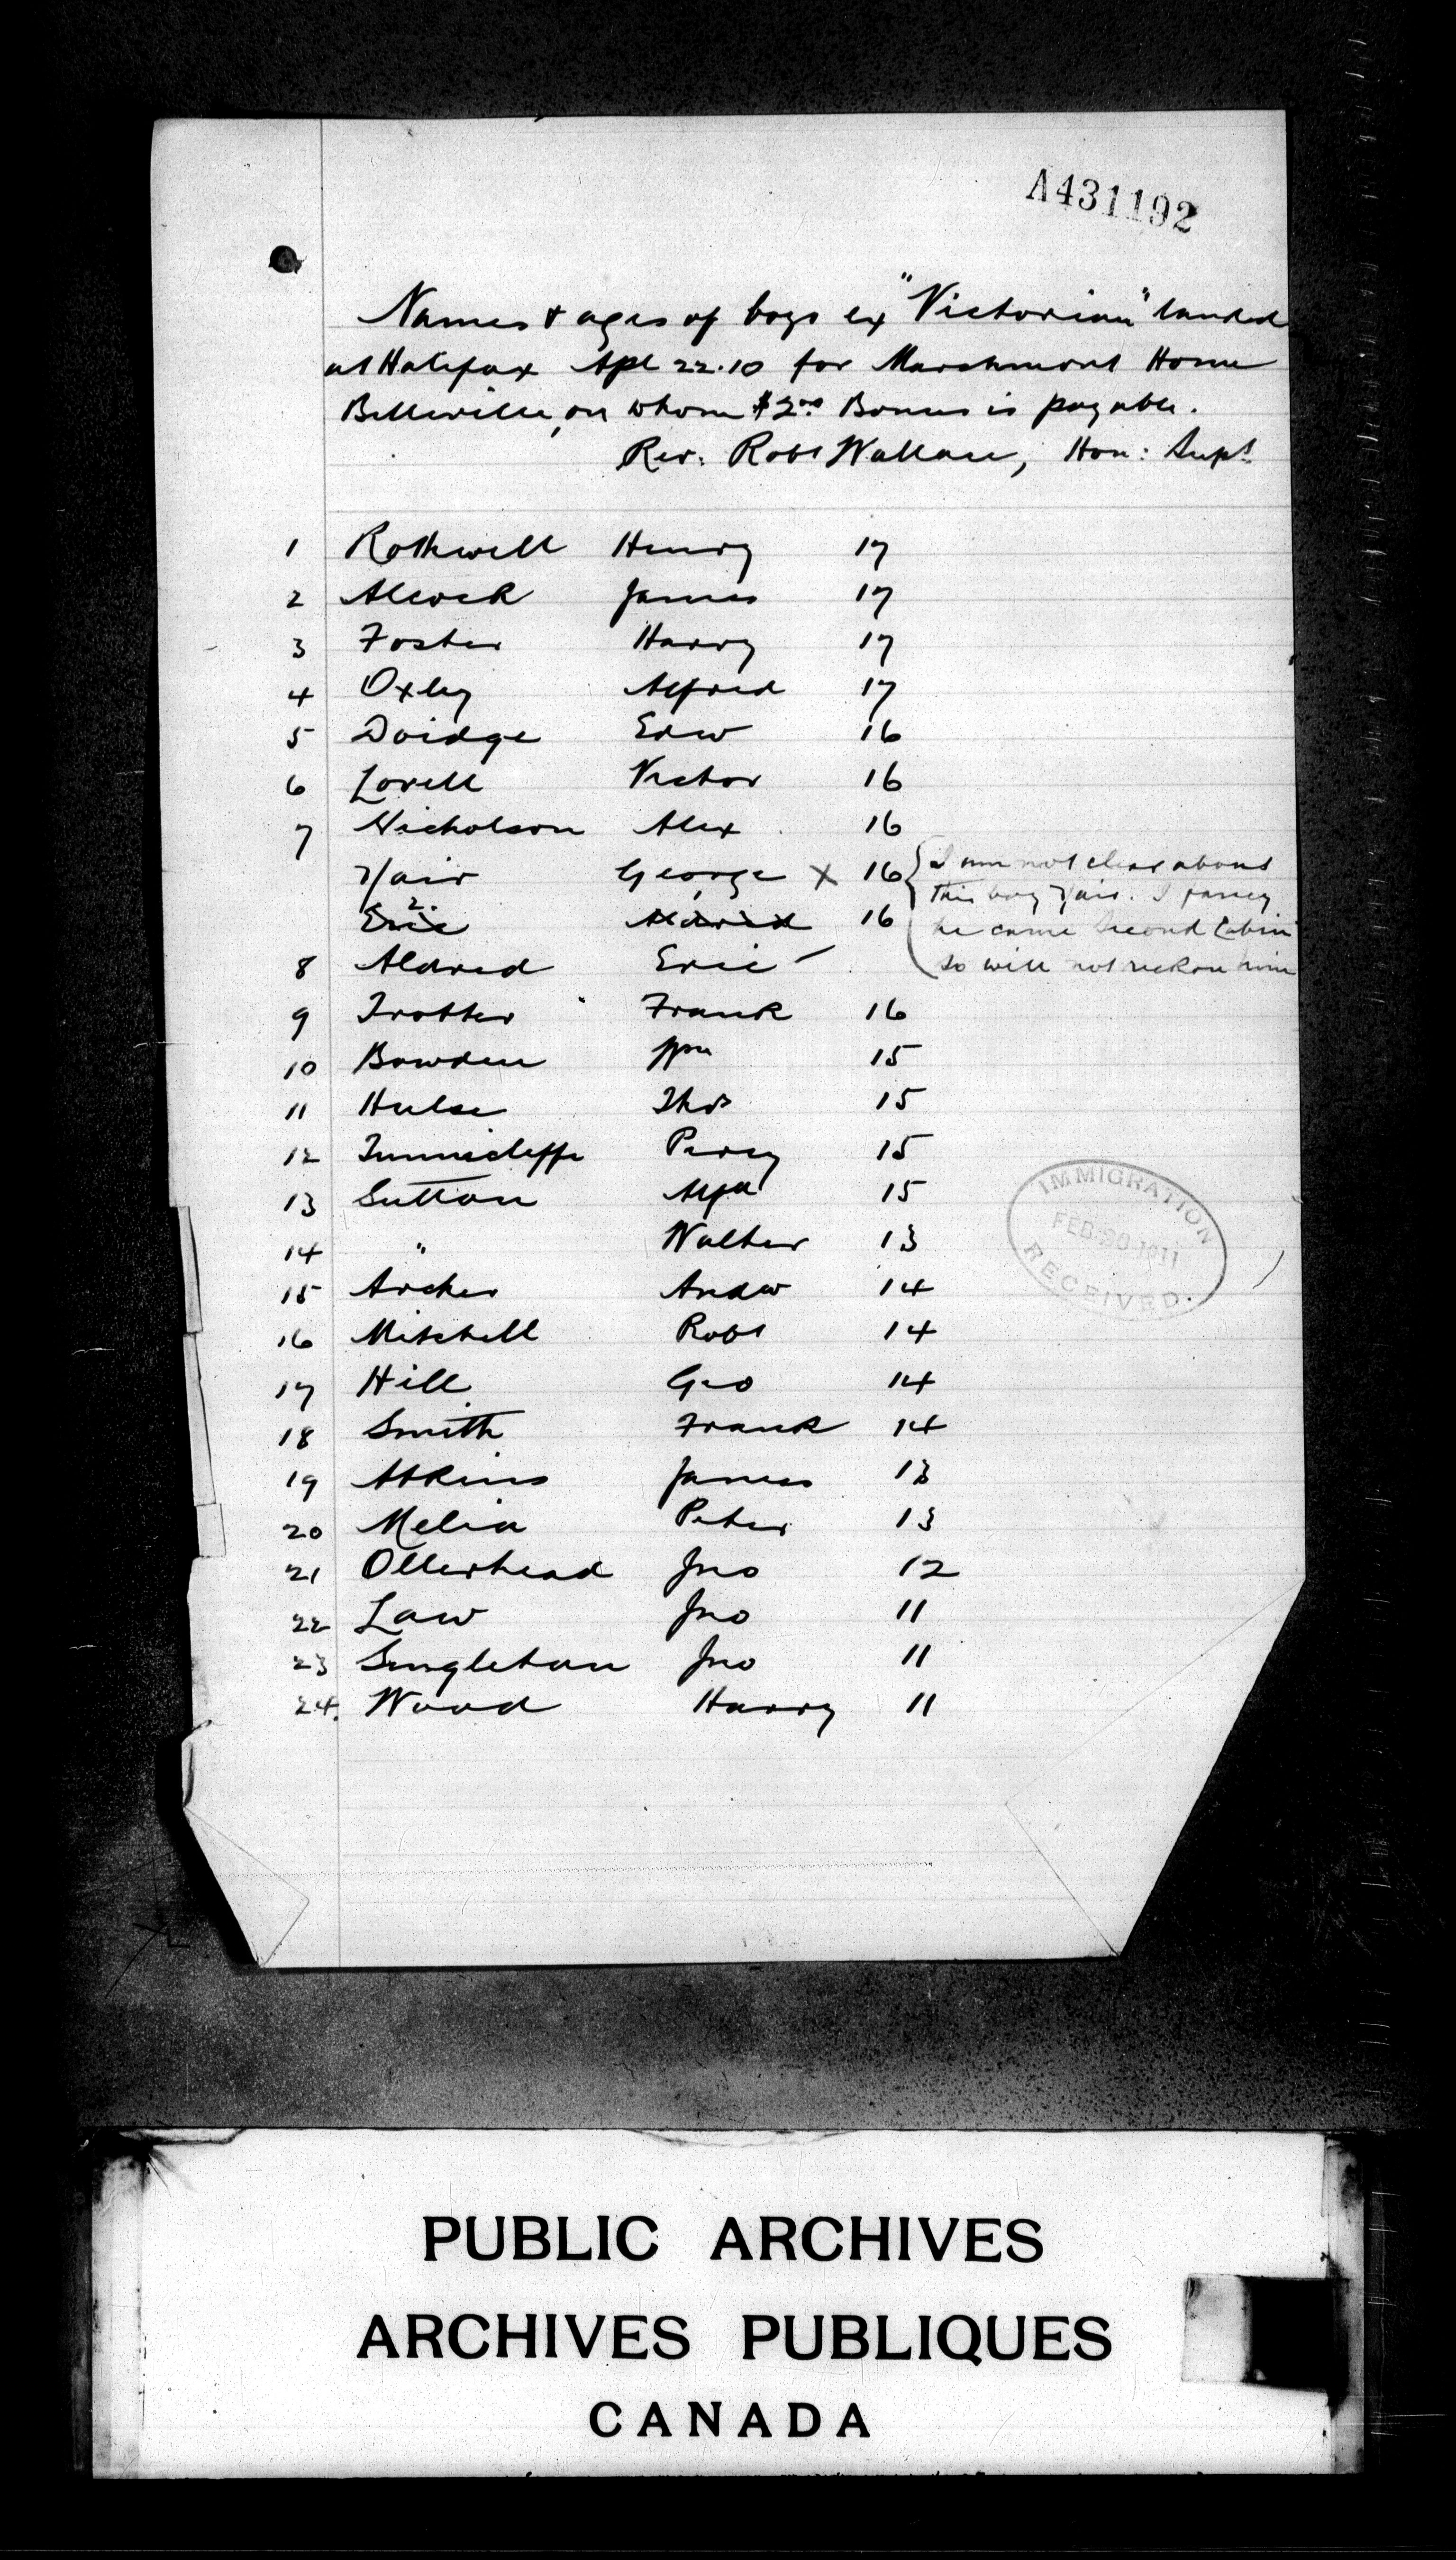 A431192
Names & ages of boys ex "Victorian" landed
at Halifax Apl 22.10 for Marchmont Home
Belleville, on whom $2.00 Bonus is payable.
Rev: Robt Wallace, Hon: Supt
1 Rothwell Henry 17
2 Alcock James 17
3 Foster Harry 17
4 Oxley Alfred 17
5 Doidge Edw 16
6 Lovell Victor 16
7 Nicholson Alex 16
Hair George X 16 { I am not clear about
this boy Hair. I fancy
Eric Aldred 16 he came Second Cabin
8 Aldred Eric so will not reckon him
9 Trotter Frank 16
10 Bowden Wm 15
11 Hulse Thos 15
12 Tunnicliffe Percy 15
13 Sutton Alfd 15
14 " Walter 13
15 Archer Andw 14
16 Mitchell Robt 14
17 Hill Geo 14
18 Smith Frank 14
19 Atkins James 13
20 Melia Peter 13
21 Ollerhead Jno 12
22 Law Jno 11
23 Singleton Jno 11
24. Wood Harry 11
IMMIGRATION
FEB 20 1911
RECEIVED.
PUBLIC ARCHIVES
ARCHIVES PUBLIQUES
CANADA